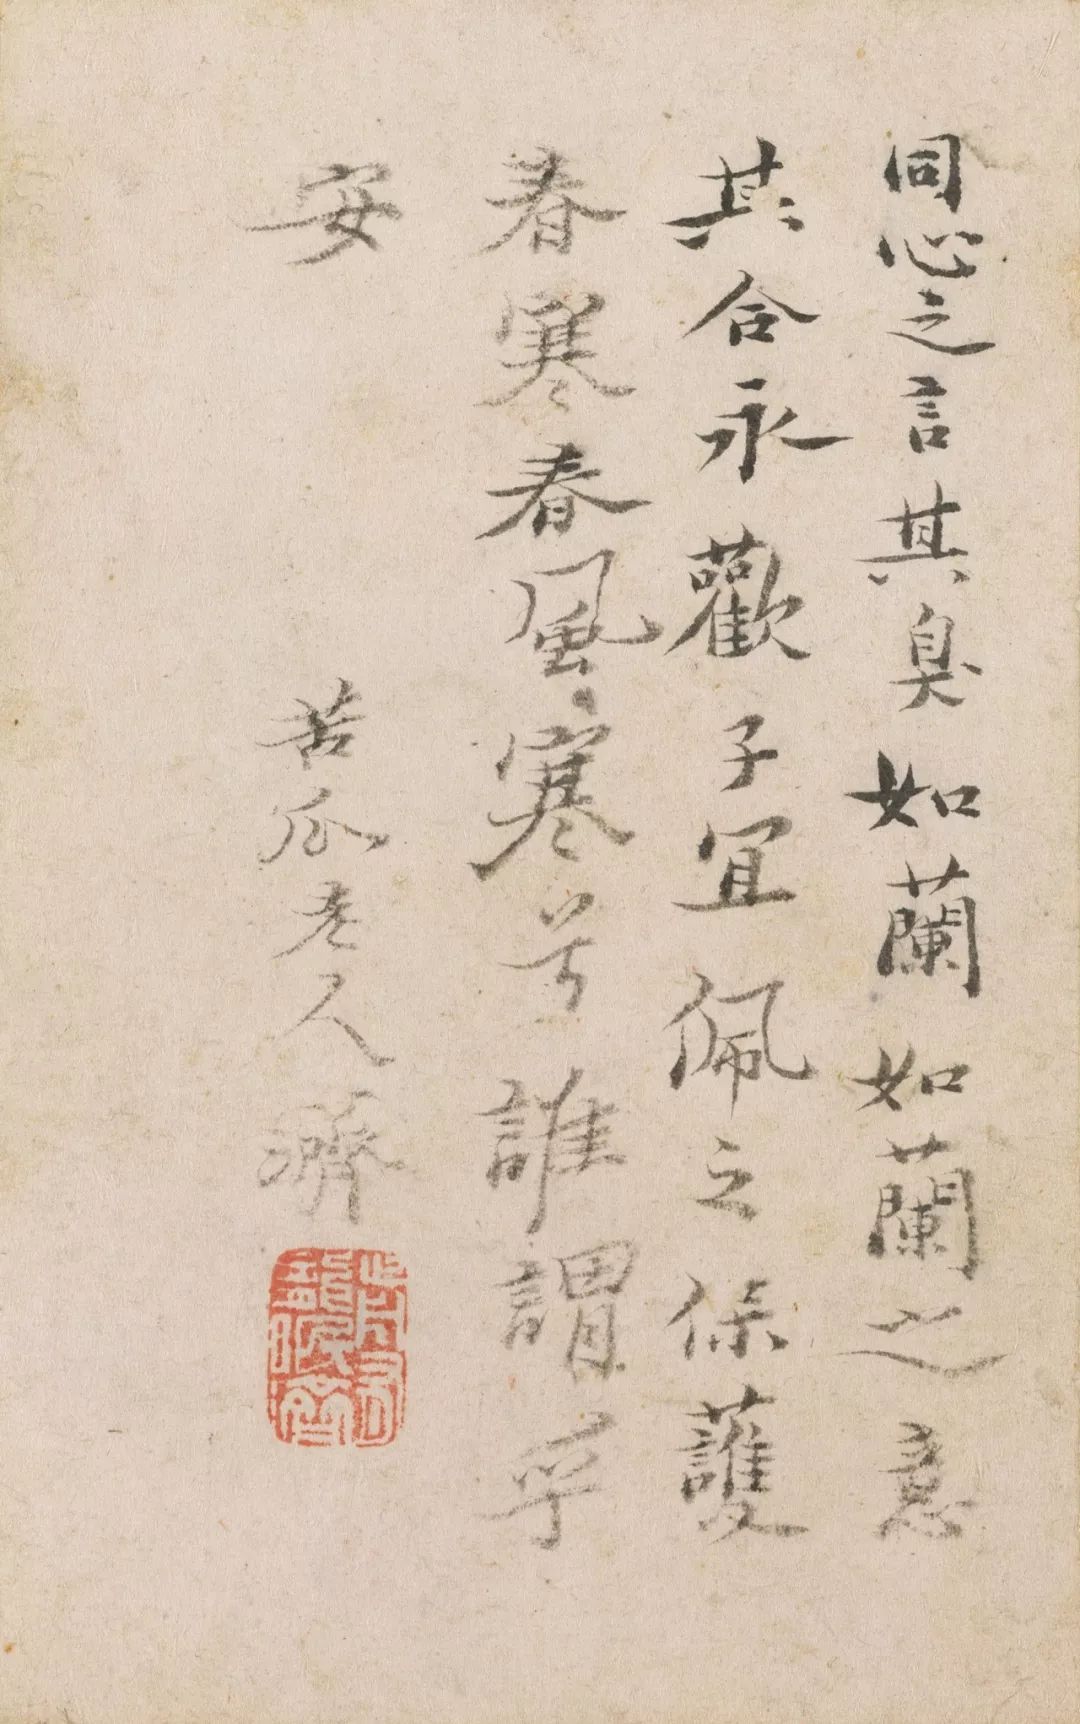 同心之言其臭如蘭如蘭之意
其合永歡子宜佩之保護
春寒春風〻寒兮誰謂乎
安
苦瓜老人濟